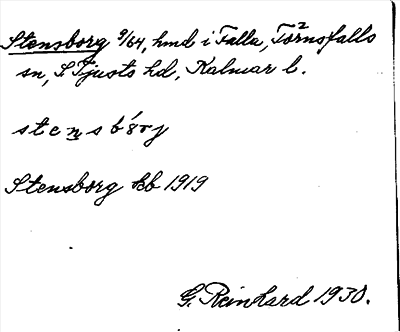 Stensborg 9/64, hmd i Falla, Törnsfalls
sn, S Tjusts hd, Kalmar l.
stensbórj
Stensborg kb 1919
G. Reinhard 1930.